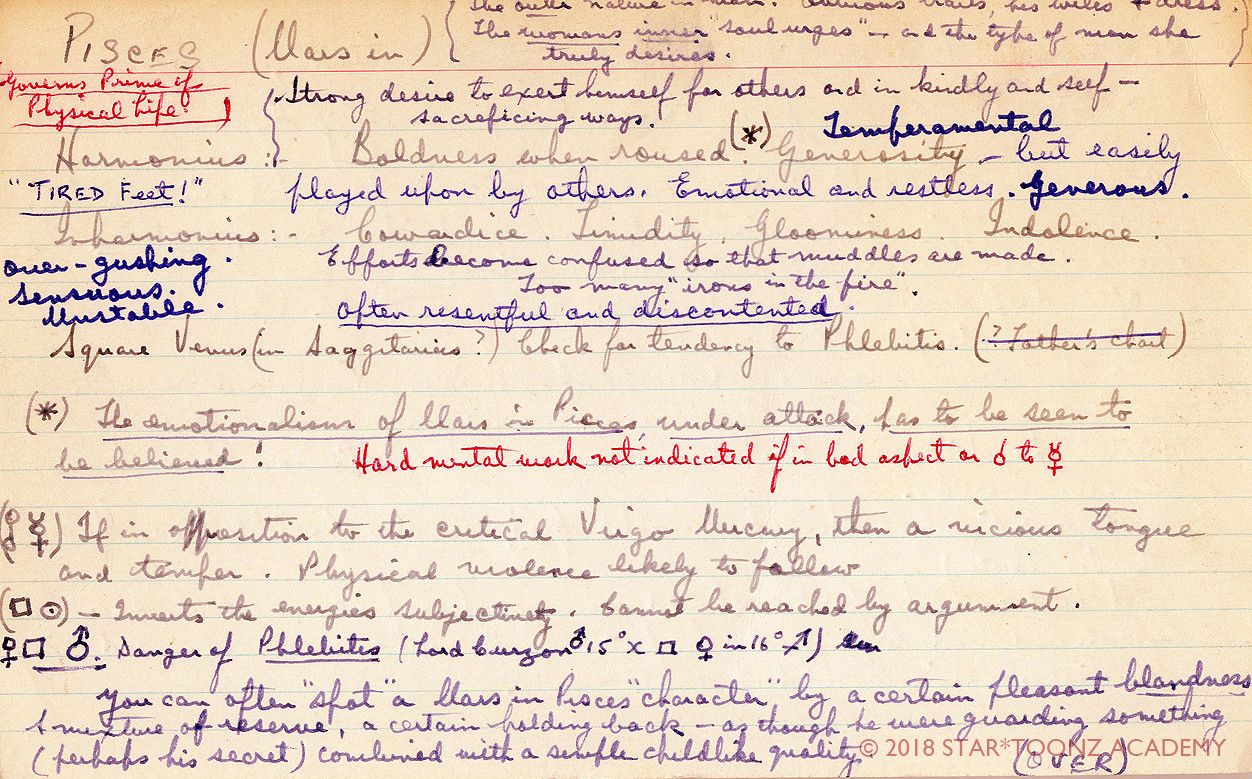 The outer nature in man. Obvious traits, his wiles + dress.
PISCES (Mars in) { The womans inner "soul urges" — and the type of man she
truly desires.
Governs Prime of
Physical Life!
Strong desire to exert himself for others and in kindly and self-
sacreficing ways!
(*) Temperamental
Harmonius :- Boldness when roused. Generosity, - but easily
"TIRED Feet!" played upon by others. Emotional and restless. Generous.
Inharmonius :- Cowardice. Timidity, Gloominess. Indolence.
over-gushing. Efforts become confused so that muddles are made.
sensuous. Too many "irons in the fire".
Unstable. Often resentful and discontented.
Square Venus (in Saggitarius?) Check for tendency to Phlebitis. (? Father's chart)
(*) The emotionalism of Mars in Pisces, under attack, has to be seen to
be believed! Hard mental work not indicated if in bad aspect or ☌ to ☿
(☍ ☿) If in opposition to the critical Virgo Mercury, then a vicious tongue
and temper. Physical violence likely to follow
(□ ☉) — Inverts the energies subjectively. Cannot be reached by argument.
♀ □ ♂. Danger of Phlebites (Lord Curzon ♂ 15° X □ ♀ in 16° ♐)
You can often "spot" a Mars in Pisces "character" by a certain pleasant blandness
A mixture of reserve, a certain holding back — as though he were guarding something
(perhaps his secret) combined with a simple childlike quality.
(OVER)
© 2018 STAR*TOONZ ACADEMY